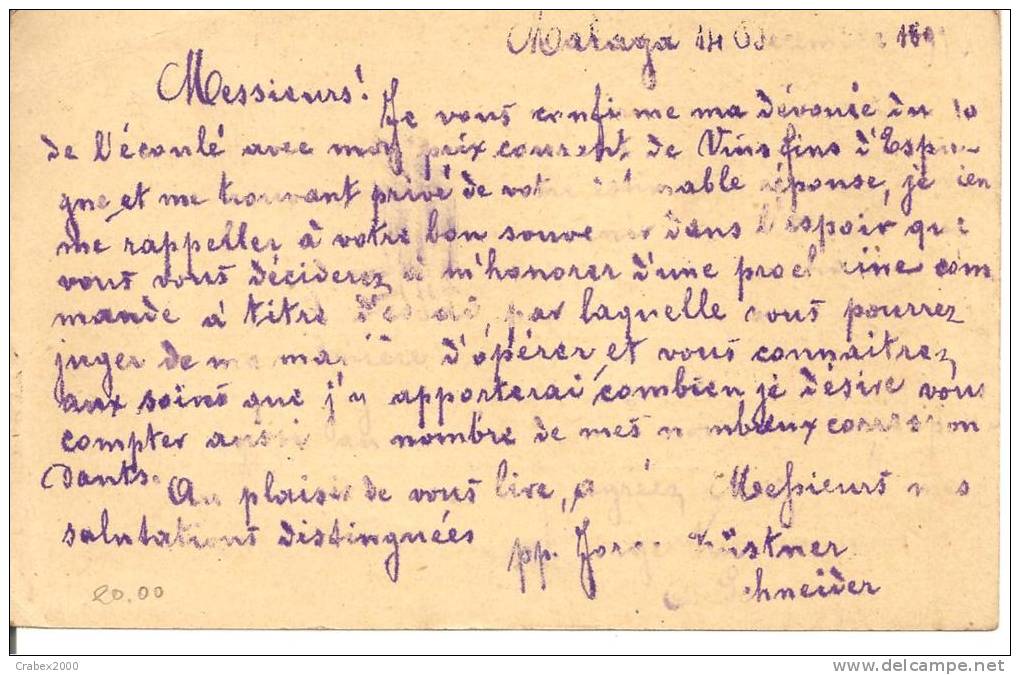 Malaga 14 Décembre 189
Messieurs!
Je vous confirme ma dévouée du 10
de l'écoulé avec mon prix courent de Vins fins d'Espa-
gne et me trouvant privé de votre estimable réponse, je viens
me rappeller à votre bon souvenir dans l'espoir que
vous vous déciderez à m'honorer d'une prochaine com
mande à titre d'essai, par laquelle vous pourrez
juger de ma manière d'opérer, et vous connaitrez,
aux soins que j'y apporterai, combien je désire vous
compter aussi au nombre de mes nombreux correspon
dants.
Au plaisir de vous lire, agréez Messieurs mes
salutations distinguées
pp. Jorge Küstner
Schneider
20.00
Crabex2000
www.delcampe.net